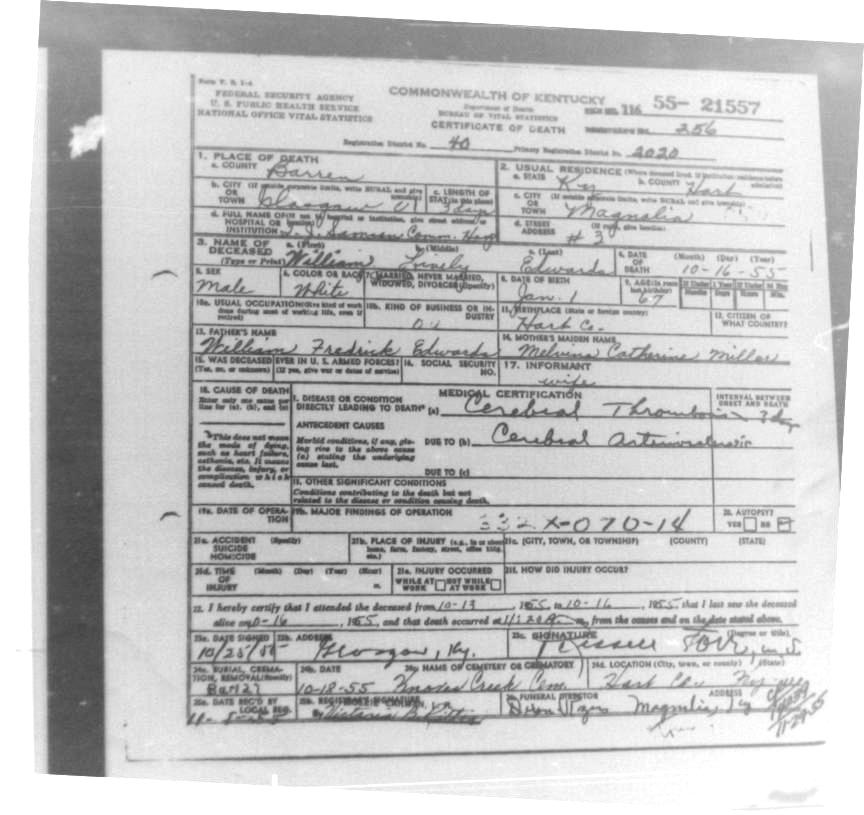 Form V. S. 1-A
FEDERAL SECURITY AGENCY
U. S. PUBLIC HEALTH SERVICE
NATIONAL OFFICE VITAL STATISTICS
COMMONWEALTH OF KENTUCKY
Department of Health
BUREAU OF VITAL STATISTICS
CERTIFICATE OF DEATH
FILE NO. 116 55- 21557
REGISTRAR'S NO. 256
Registration District No. 40 Primary Registration District No. 2020
1. PLACE OF DEATH
a. COUNTY Barren
2. USUAL RESIDENCE (Where deceased lived. If institution: residence before admission)
a. STATE Ky b. COUNTY Hart
b. CITY (If outside corporate limits, write RURAL and give township) OR TOWN Glasgow
c. LENGTH OF STAY (in this place) 3 days
c. CITY (If outside corporate limits, write RURAL and give township) OR TOWN Magnolia
d. FULL NAME OF (If not in hospital or institution, give street address or location) HOSPITAL OR INSTITUTION T. J. Samson Comm. Hosp
d. STREET ADDRESS (If rural, give location) # 3
3. NAME OF DECEASED (Type or Print)
a. (First) William b. (Middle) Lively c. (Last) Edwards
4. DATE OF DEATH (Month) (Day) (Year) 10-16-55
5. SEX Male
6. COLOR OR RACE White
7. MARRIED, NEVER MARRIED, WIDOWED, DIVORCED (Specify)
8. DATE OF BIRTH Jan. 1
9. AGE (In years last birthday) 67 If Under 1 Year Months Days If Under 24 Hrs. Hours Min.
10a. USUAL OCCUPATION (Give kind of work done during most of working life, even if retired)
10b. KIND OF BUSINESS OR INDUSTRY
11. BIRTHPLACE (State or foreign country) Hart Co.
12. CITIZEN OF WHAT COUNTRY?
13. FATHER'S NAME William Fredrick Edwards
14. MOTHER'S MAIDEN NAME Melvina Catherine Miller
15. WAS DECEASED EVER IN U. S. ARMED FORCES?
(Yes, no, or unknown) (If yes, give war or dates of service)
16. SOCIAL SECURITY NO.
17. INFORMANT wife
18. CAUSE OF DEATH
Enter only one cause per line for (a), (b), and (c)
MEDICAL CERTIFICATION
INTERVAL BETWEEN ONSET AND DEATH
I. DISEASE OR CONDITION DIRECTLY LEADING TO DEATH* (a) Cerebral Thrombosis 3 days
*This does not mean the mode of dying, such as heart failure, asthenia, etc. It means the disease, injury, or complication which caused death.
ANTECEDENT CAUSES
Morbid conditions, if any, giving rise to the above cause (a) stating the underlying cause last.
DUE TO (b) Cerebral Arteriosclerosis
DUE TO (c)
II. OTHER SIGNIFICANT CONDITIONS
Conditions contributing to the death but not related to the disease or condition causing death.
19a. DATE OF OPERATION
19b. MAJOR FINDINGS OF OPERATION
332X-070-14
20. AUTOPSY?
YES NO
21a. ACCIDENT SUICIDE HOMICIDE (Specify)
21b. PLACE OF INJURY (e.g., in or about home, farm, factory, street, office bldg. etc.)
21c. (CITY, TOWN, OR TOWNSHIP) (COUNTY) (STATE)
21d. TIME OF INJURY (Month) (Day) (Year) (Hour) m.
21e. INJURY OCCURRED
WHILE AT WORK NOT WHILE AT WORK
21f. HOW DID INJURY OCCUR?
22. I hereby certify that I attended the deceased from 10-13, 1955, to 10-16, 1955, that I last saw the deceased
alive on 10-16, 1955, and that death occurred at 11:20 m., from the causes and on the date stated above.
23a. DATE SIGNED 10/25/55
23b. ADDRESS Glasgow, Ky.
23c. SIGNATURE (Degree or title)
24a. BURIAL, CREMATION, REMOVAL (Specify) Burial
24b. DATE 10-18-55
24c. NAME OF CEMETERY OR CREMATORY Knoxes Creek Cem.
24d. LOCATION (City, town, or county) (State) Hart Co.
25a. DATE REC'D BY LOCAL REG.
25b. REGISTRAR'S SIGNATURE
26. FUNERAL DIRECTOR ADDRESS
Magnolia, Ky
11-29-55